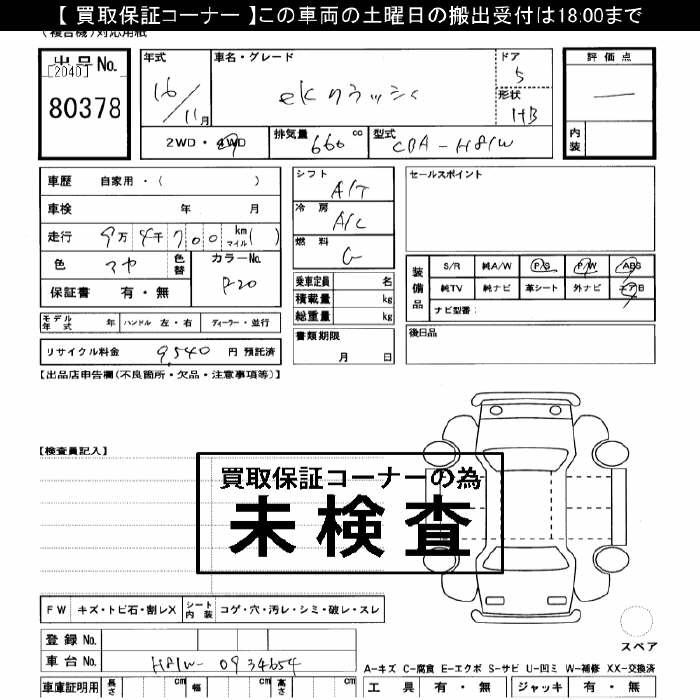 【 買取保証コーナー 】この車両の土曜日の搬出受付は18:00まで
(複合機)対応用紙
出品No.
[2040]
80378
年式
16/11月
車名・グレード
eKクラッシィ
ドア
5
形状
HB
評価点
—
内装
2WD・4WD
排気量 660 cc
型式 CBA-H81W
車歴 自家用・( )
車検 年 月
走行 9万4千700 km マイル ( )
色
色替
カラーNo.
P20
保証書 有・無
モデル年式 年 ハンドル 左・右 ディーラー・並行
リサイクル料金 9,540 円 預託済
シフト
A/T
冷房
A/C
燃料
G
乗車定員 名
積載量 kg
総重量 kg
書類期限
月 日
セールスポイント
装備品
S/R 純A/W P/S P/W ABS
純TV 純ナビ 革シート 外ナビ エアB
ナビ型番:
後日品
【出品店申告欄(不良箇所・欠品・注意事項等)】
【検査員記入】
買取保証コーナーの為
未検査
FW キズ・トビ石・割レX シート内装 コゲ・穴・汚レ・シミ・破レ・スレ
登録 No.
車台 No. H81W-0934654
スペア
A-キズ C-腐食 E-エクボ S-サビ U-凹ミ W-補修 XX-交換済
車庫証明用 長さ cm 幅 cm 高さ cm
工具 有・無 ジャッキ 有・無